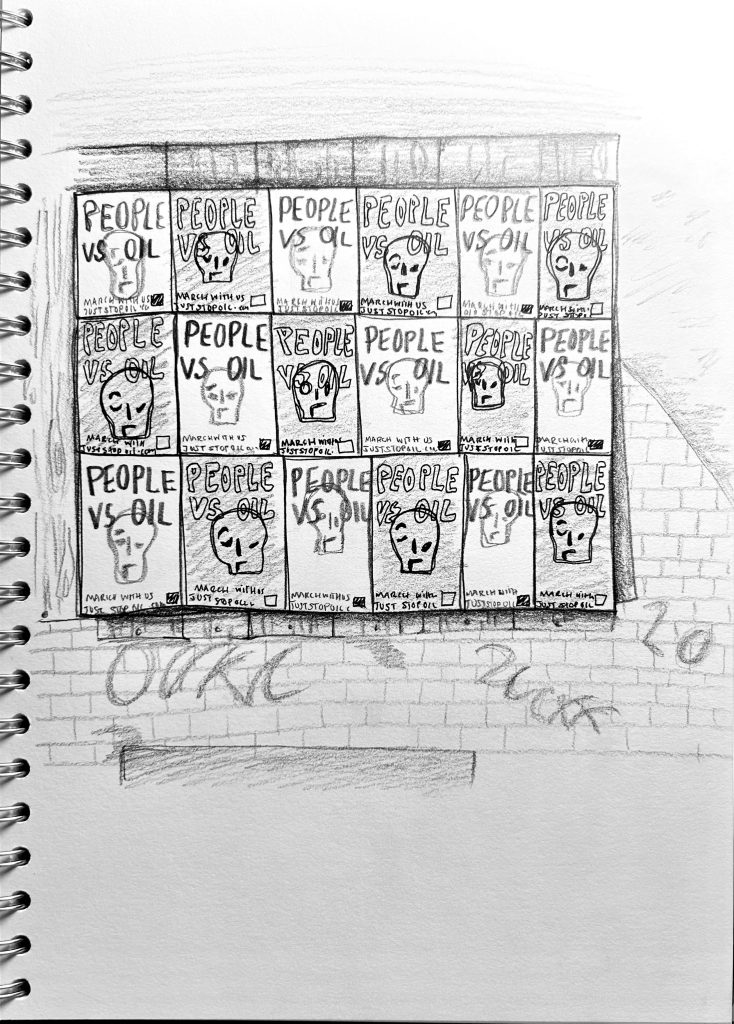 PEOPLE
VS OIL
MARCH WITH US
JUSTSTOPOIL
PEOPLE
VS OIL
MARCH WITH US
JUSTSTOPOIL.com
PEOPLE
VS OIL
MARCH WITH US
JUST STOPOIL
PEOPLE
VS OIL
MARCH WITH US
JUST STOPOIL
PEOPLE
VS OIL
MARCH WITH
JUST STOPOIL
PEOPLE
VS OIL
MARCH WITH
JUST STOPOIL
PEOPLE
VS OIL
MARCH WITH
JUST STOP OIL.com
PEOPLE
VS OIL
MARCH WITH US
JUST STOPOIL
PEOPLE
VS OIL
MARCH WITH
JUST STOPOIL
PEOPLE
VS OIL
MARCH WITH US
JUST STOPOIL
PEOPLE
VS OIL
MARCH WITH
JUST STOPOIL
PEOPLE
VS OIL
MARCH WITH
JUSTSTOPOIL
PEOPLE
VS OIL
MARCH WITH US
JUST STOP OIL
PEOPLE
VS OIL
MARCH WITH US
JUST STOPOIL
PEOPLE
VS OIL
MARCH WITH US
JUSTSTOPOIL
PEOPLE
VS OIL
MARCH WITH
JUST STOPOIL
PEOPLE
VS OIL
MARCH WITH
JUSTSTOPOIL
PEOPLE
VS OIL
MARCH WITH
JUST STOP OIL
20